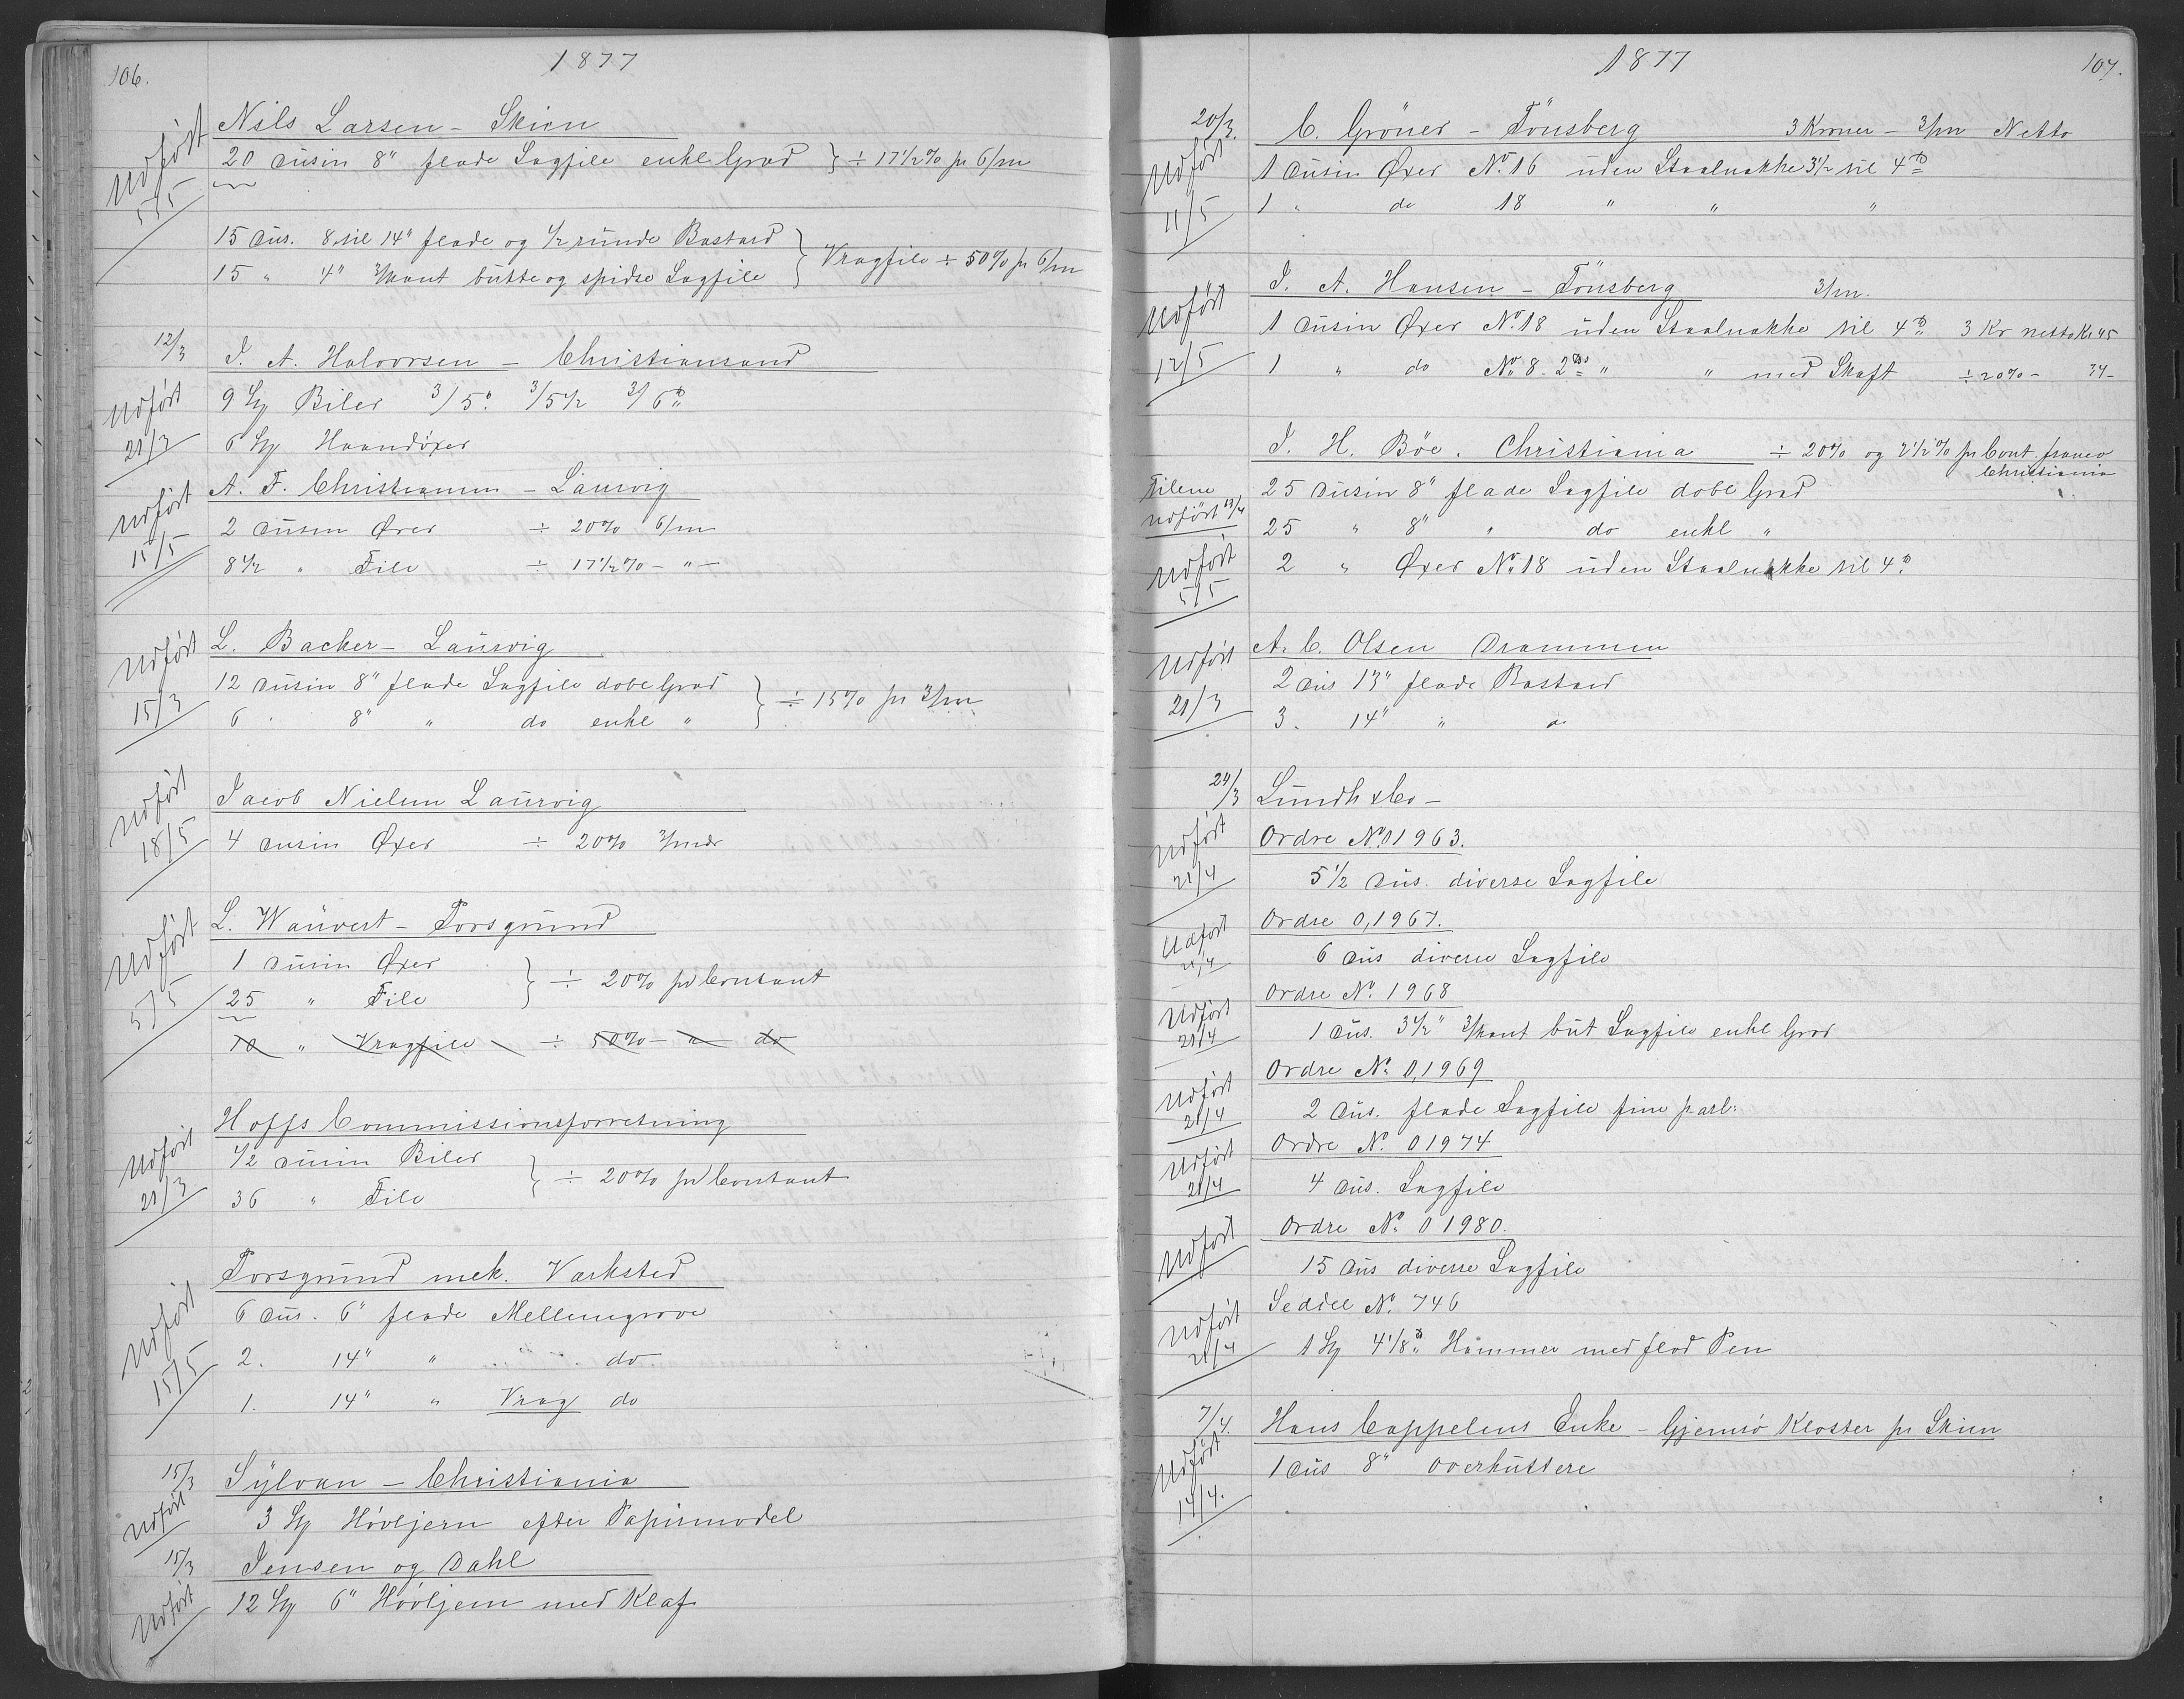 106.
1877
Nils Larsen - Skien
Udført 5/5
20 Dusin 8" flade Sagfile enkl Grad } ÷ 17 1/2 % pr 6/m
15 Dus. 8 til 14" flade og 1/2 runde Bastard } Vragfile ÷ 50% pr 6/m
15 " 4" 3/kant butte og spidse Sagfile
12/3
J. A. Halvorsen - Christiansand
Udført 21/3
9 St Biler 3/5" 3/5 1/2 3/6 ℔
6 St Haandøxer
A. F. Christiansen - Laurvig
Udført 15/5
2 Dusin Øxer ÷ 20% 6/m
8 1/2 " File ÷ 17 1/2 % - " -
L. Backer - Laurvig
Udført 15/3
12 Dusin 8" flade Sagfile dobl Grad } ÷ 15% pr 3/m
6 " 8" " do enkl "
Jacob Nielsen Laurvig
Udført 18/5
4 Dusin Øxer ÷ 20% 3/mdr
L. Wauvert - Porsgrund
Udført 5/5
1 Dusin Øxer } ÷ 20% pr Contant
25 " File
10 " Vragfile ÷ 50% - " do
Hoffs Commissionsforretning
Udført 21/3
1/2 Dusin Biler } ÷ 20% pr Contant
36 " File
Porsgrund mek. Værksted
Udført 15/5
6 Dus. 6" flade Mellemgrove
2. 14" " do
1. 14" " Vrag do
15/3
Sylvan - Christiania
Udført
3 St Høvljern efter Papirmodel
15/3
Jensen og Dahl
Udført
12 St 6" Høvljern med Klaf
1877
107.
20/3.
C. Gröner - Tönsberg 3 Kroner - 3/m Netto
Udført 11/5
1 Dusin Øxer No. 16 uden Staalnakke 3 1/2 til 4 ℔
1 " do 18 " " "
J. A. Hansen - Tönsberg 3/m.
Udført 12/5
1 Dusin Øxer No. 18 uden Staalnakke til 4 ℔ 3 Kr netto Kr 45
1 " do No. 8 - 2 ℔ " " med Skaft ÷ 20% - 34-
J. H. Böe. Christiania ÷ 20% og 2 1/2 % pr Cont. franco
Christiania
Filene Udført 13/4
25 Dusin 8" flade Sagfile dobl Grad
25 " 8" " do enkl "
Udført 5/5
2 " Øxer No. 18 uden Staalnakke til 4 ℔
A. C. Olsen Drammen
Udført 21/3
2 Dus 13" flade Bastard
3. 14" " "
24/3
Lundh & Co -
Udført 21/4
Ordre No. 01963.
5 1/2 Dus. diverse Sagfile
Udført 21/4
Ordre 0,1967.
6 Dus diverse Sagfile
Udført 21/4
Ordre No. 1968
1 Dus. 3 1/2" 3/kant but Sagfile enkl Grad
Udført 21/4
Ordre No. 0,1969
2 Dus. flade Sagfile fine parl:
Udført 21/4
Ordre No. 01974
4 Dus. Sagfile
Udført
Ordre No. 01980.
15 Dus diverse Sagfile
Seddel No. 746
Udført 21/4
1 St 4 1/8 ℔ Hammer med flad Pen
7/4.
Hans Cappelens Enke - Gjemsö Kloster pr Skien
Udført 14/4.
1 Dus 8" Overkuttere